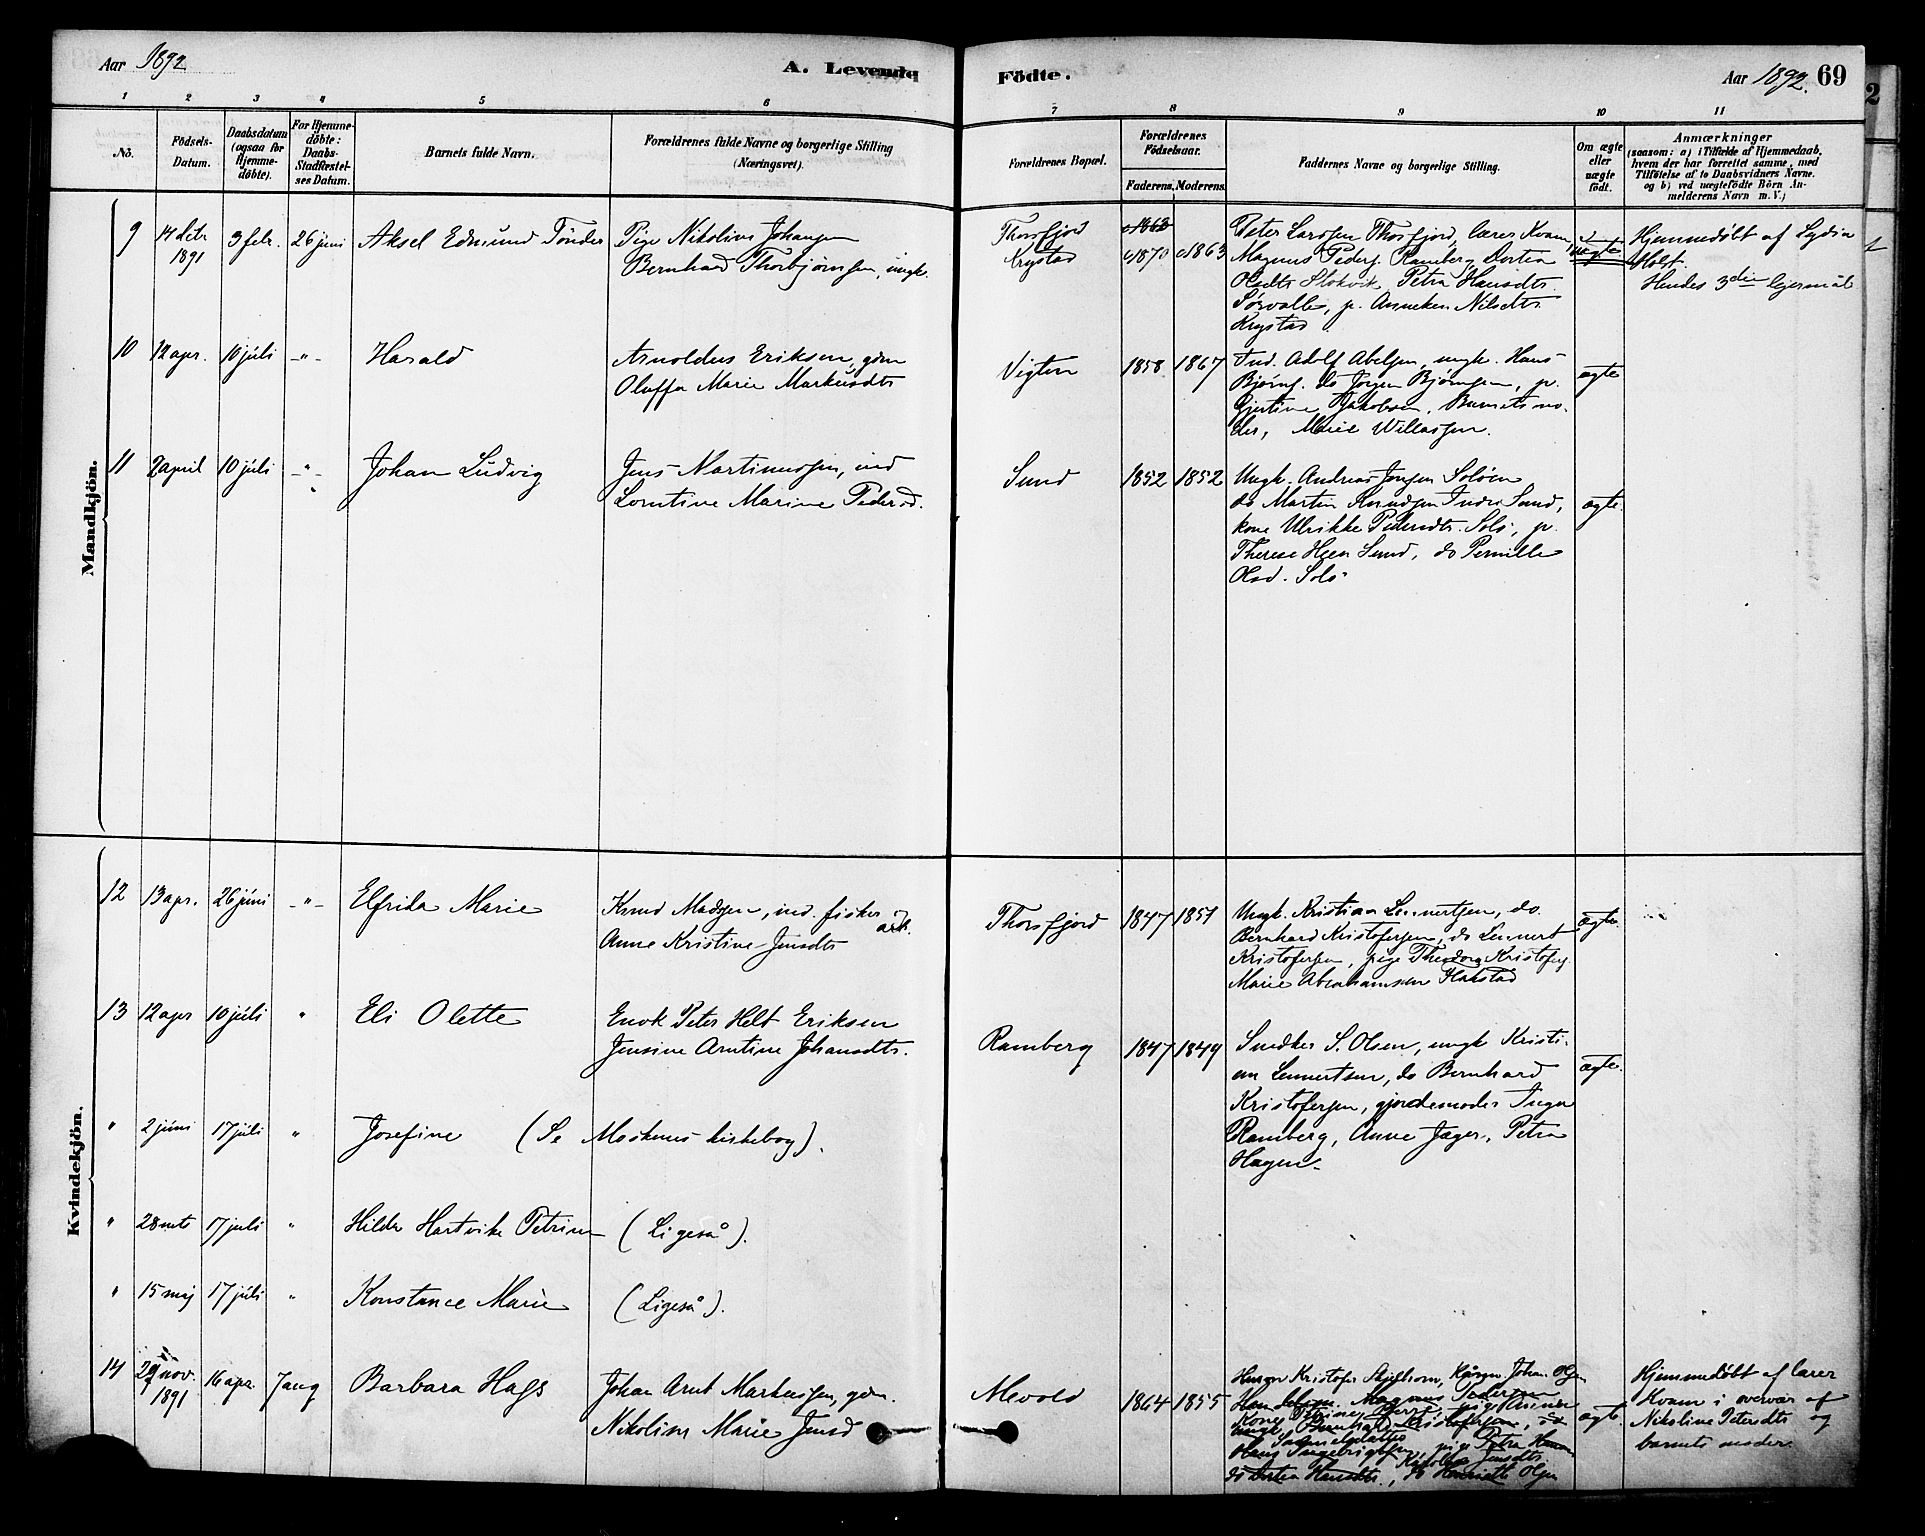 Aar 1892
A. Levende
Födte.
Aar 1892. 69
1 2 3 4 5 6 7 8 9 10 11
No.
Födsels-
Datum.
Daabsdatum
(ogsaa for
Hjemme-
döbte).
For Hjemme-
döbte:
Daabs-
Stadfæstel-
ses Datum.
Barnets fulde Navn.
Forældrenes fulde Navne og borgerlige Stilling
(Næringsvei).
Forældrenes Bopæl.
Forældrenes
Födselsaar.
Faderens. Moderens.
Faddernes Navne og borgerlige Stilling.
Om ægte
eller
uægte
født.
Anmærkninger
(saasom: a) i Tilfælde af Hjemmedaab,
hvem der har forrettet samme, med
Tilföielse af to Daabsvidners Navne,
og b) ved uægtefödte Börn An-
melderens Navn m. V.)
Mandkjön.
9 14 debr 1891 3 febr. 26 juni Aksel Edmund Tönder
Pige Nikoline Johansen
Bernhard Thorbjørnsen, ungk.
Thorsfjord
Krystad
1870 1863
Peter Larssen Thorsfjord, lærer Kvam
Magnus Peders. Ramberg Dortea
Olsdtr Stokvik, Petra Hansdtr.
Sørvalle, p. Anneken Nilsdtr
Krystad.
uægte
Hjemmedøbt af Lydia
Holst.
Hendes 3die lejermål
10 12 apr. 10 júli -"- Harald
Arnoldus Eriksen, gbm
Oluffa Marie Markusdtr
Vigten 1858 1867
Ind. Adolf Abelsen, ungk. Hans
Bjørns. do Jørgen Bjørnsen, p.
Gjertine Jakobsen, Barnets mo-
der, Marie Willassen.
ægte
11 2 april 10 júli -"- Johan Ludvig
Jens Martinussen, ind
Lorntine Marine Pedersd.
Sund 1852 1852
Ungk. Andreas Jensen Soløen
do Martin Knudsen Indre Sund,
kone Ulrikke Pedersdtr. Solø, p.
Therese Heen Sund, do Pernille
Olsd. Solø
ægte.
Kvindekjön.
12 13 apr. 26 júni -"- Elfrida Marie
Knud Madsen, ind. fisker
Anne Kristine Jensdtr
Thorsfjord 1847 1851
Ungk. Kristian Lennertsen, do.
Bernhard Kristofersen, do Lennert
Kristofersen, pige Theodora Kristofers.
Marie Abrahamsen Flakstad
ægte
13 12 apr 10 júli " Eli Olette
Enok Peter Helt Eriksen
Jensine Arntine Johansdtr.
Ramberg 1847 1849
Snedker S. Olsen, ungk Kristi-
an Lennertsen, do Bernhard
Kristofersen, gjordemoder Inga
Ramberg, Anne Jæger, Petra
Hagen.
ægte.
" 2 júni 17 júli " Josefine (Se Moskenes kirkebog).
" 28 mts 17 juli " Hilda Hartvike Petrine (Ligeså).
" 15 maj 17 júli " Konstance Marie (Ligeså).
14 29 nov. 1891 16 apr. Barbara Hags
Johan Arnt Markussen, gbm.
Nikoline Marie Jensd
Mevold 1864 1855
ægte.
Hjemmedøbt af lærer
Kvam i overvær af
Nikoline Petersdtr og
barnets moder.